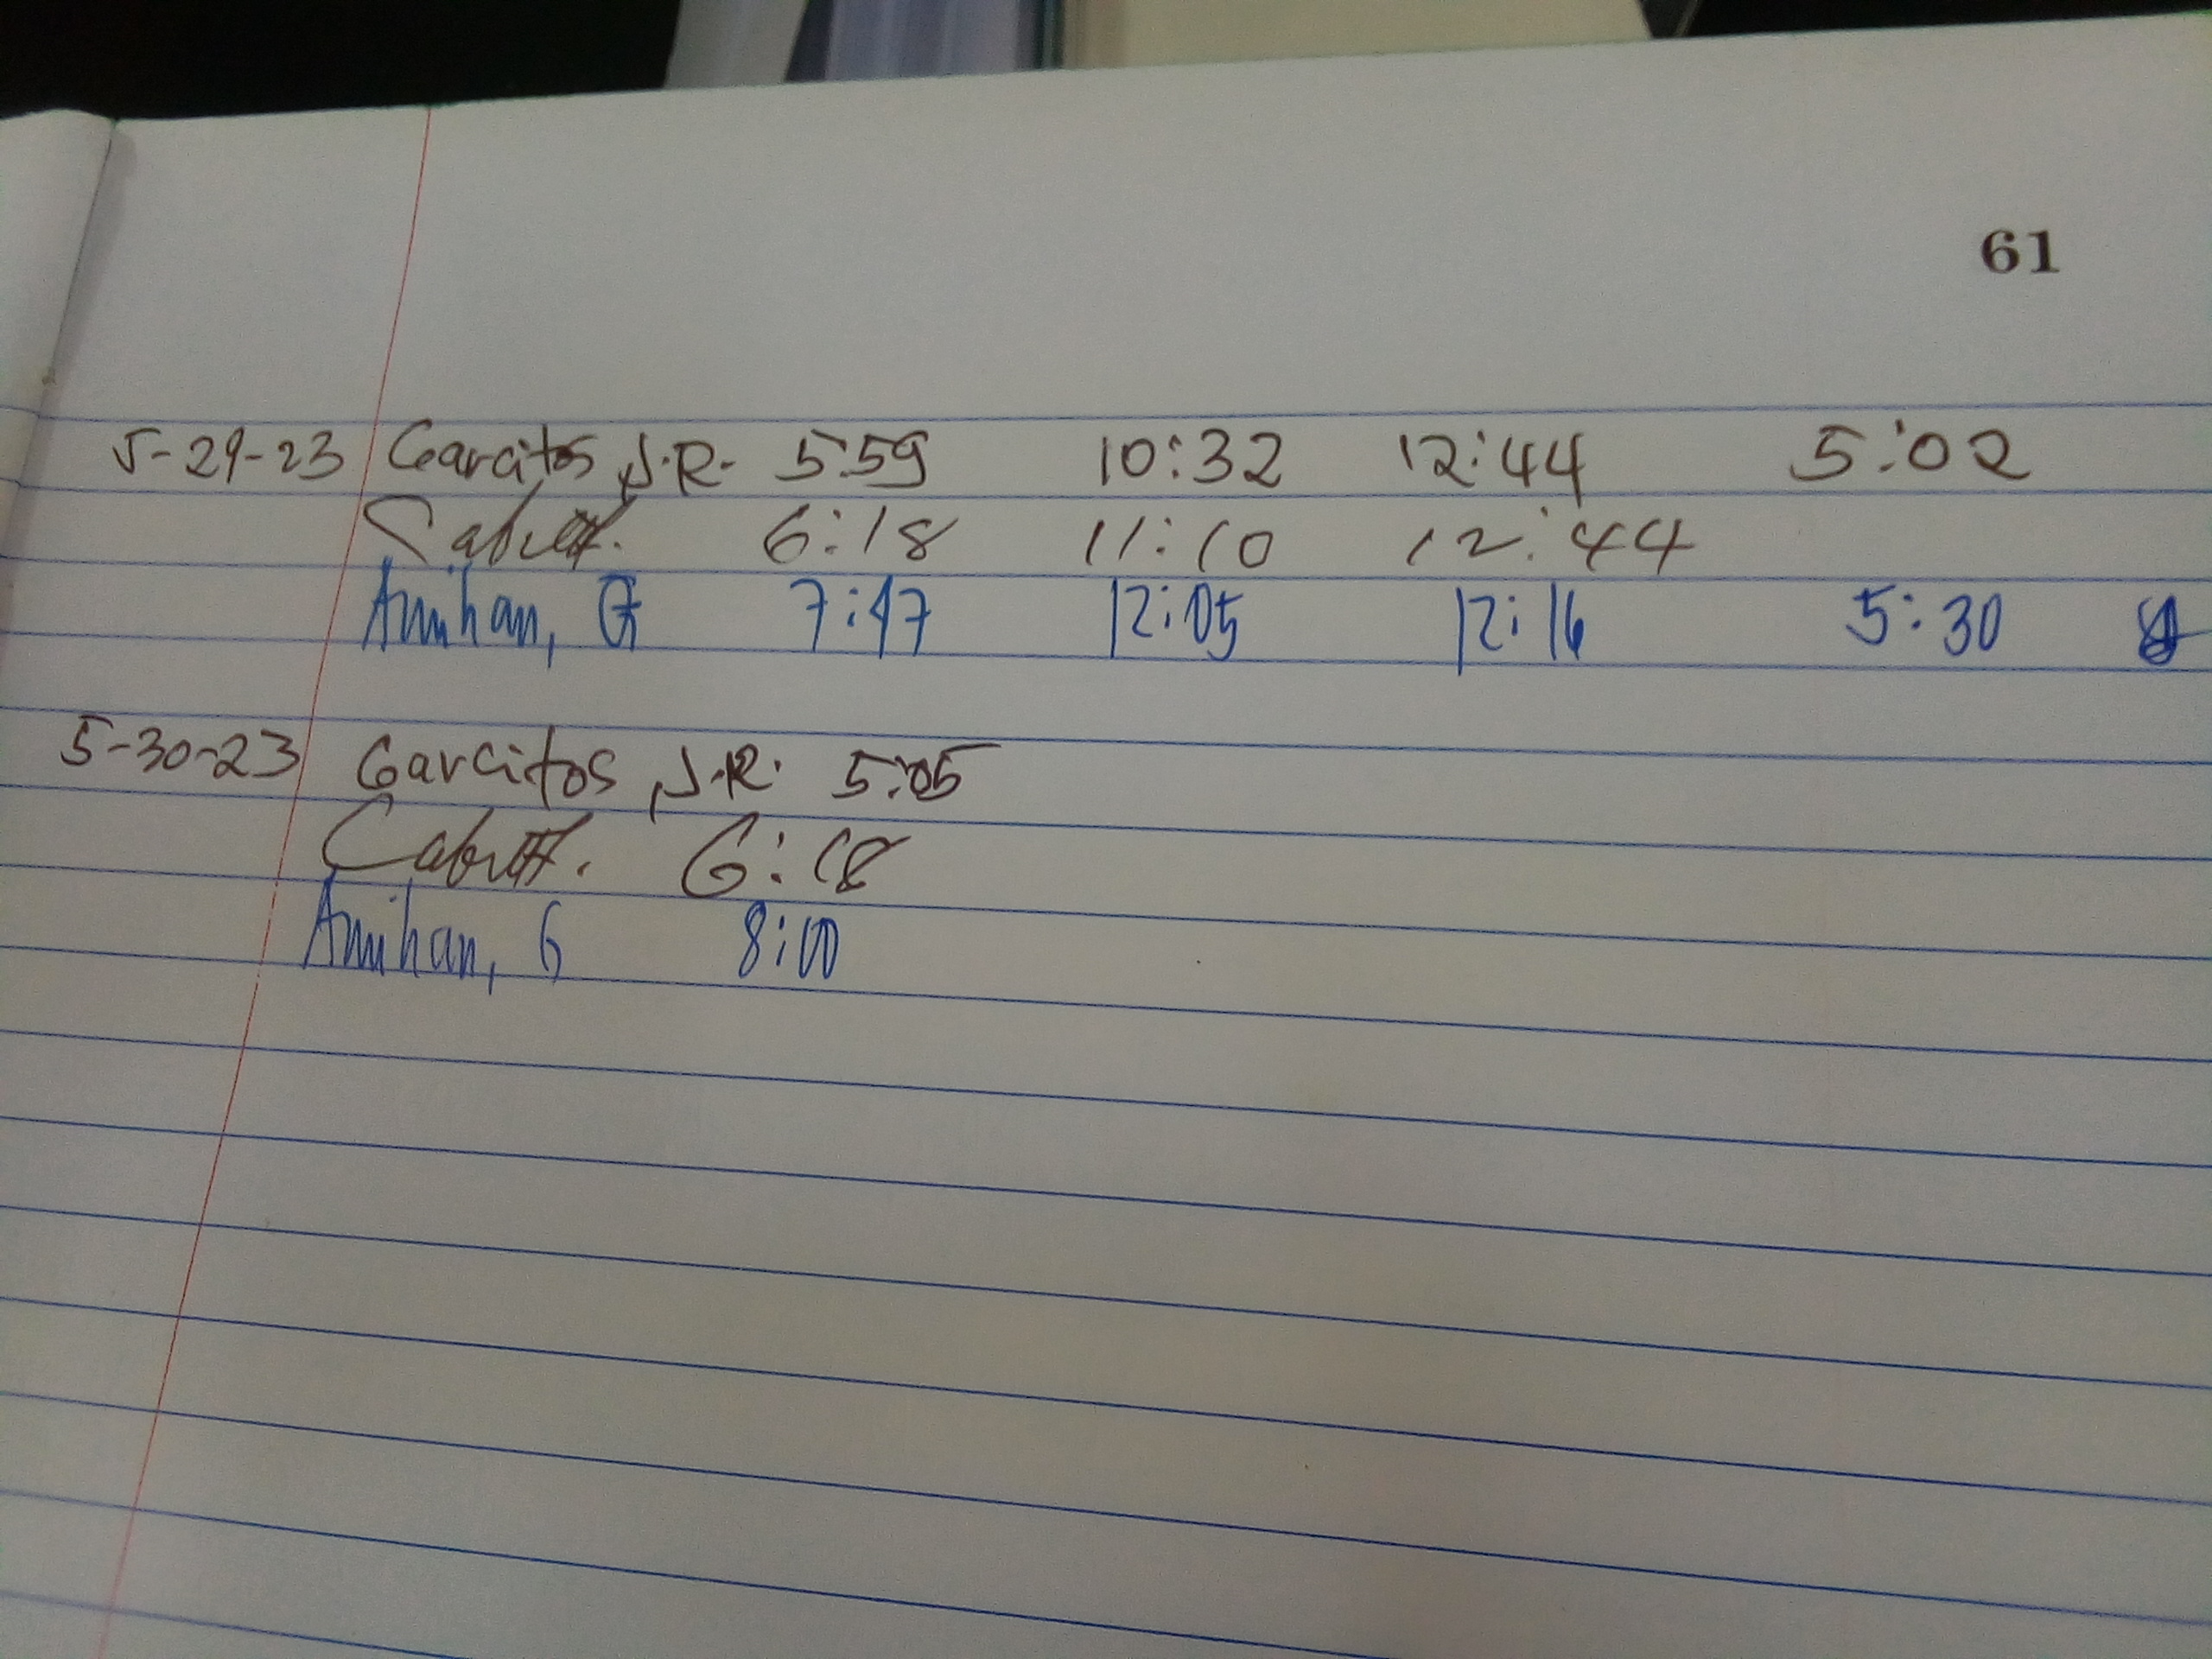 61
5-29-23 Garcitos, J.R. 5:59 10:32 12:44 5:02
6:18 11:10 12:44
Amihan, G 7:47 12:05 12:16 5:30
5-30-23 Garcitos, J.R. 5:05
6:18
Amihan, G 8:00